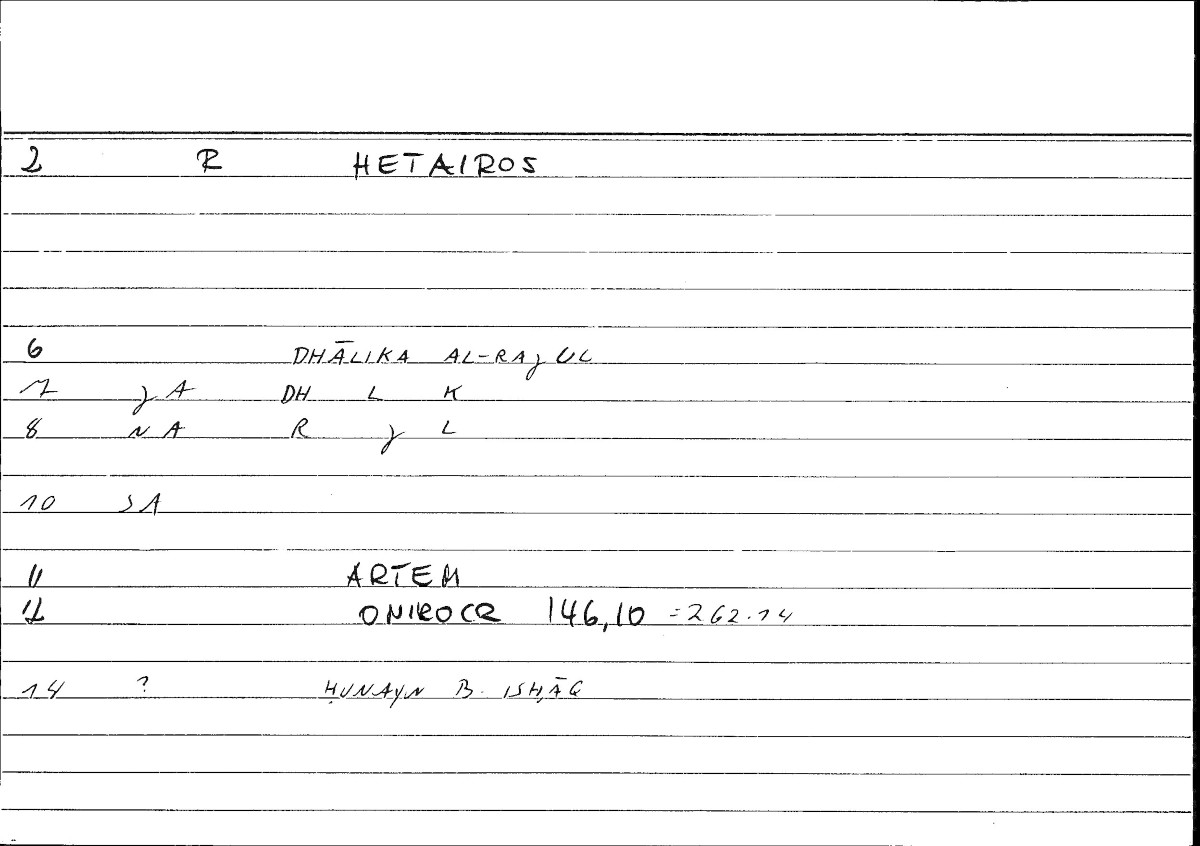 2 R HETAIROS
6 DHĀLIKA AL-RAJUL
7 JA DH L K
8 NA R J L
10 SA
11 ARTEM
12 ONIROCR 146,10 =262.14
14 ? ḤUNAYN B. ISḤĀQ